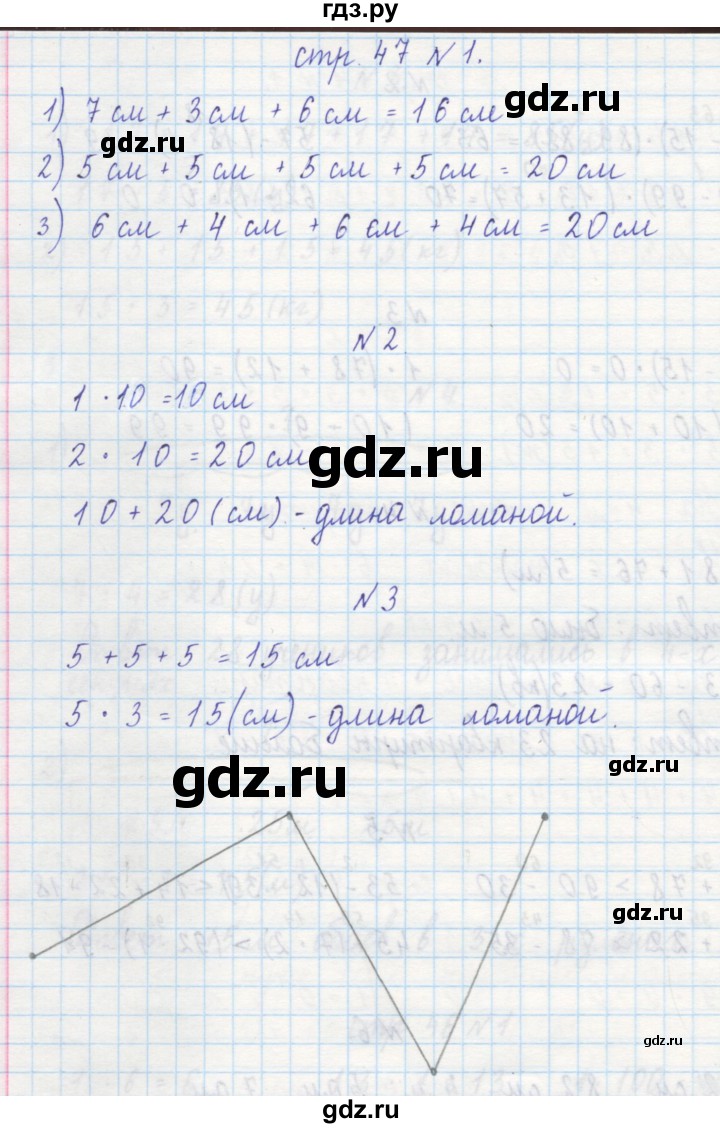 гдз.ру
стр. 47 №1.
1) 7 см + 3 см + 6 см = 16 см
gdz.ru
gdz.ru
2) 5 см + 5 см + 5 см + 5 см = 20 см
3) 6 см + 4 см + 6 см + 4 см = 20 см
№2.
1 · 10 = 10 см
2 · 10 = 20 см
gdz.ru
10 + 20 (см) - длина ломаной.
№3
5 + 5 + 5 = 15 см
5 · 3 = 15 (см) - длина ломаной.
gdz.ru
gdz.ru
gdz.ru
gdz.ru
gdz.ru